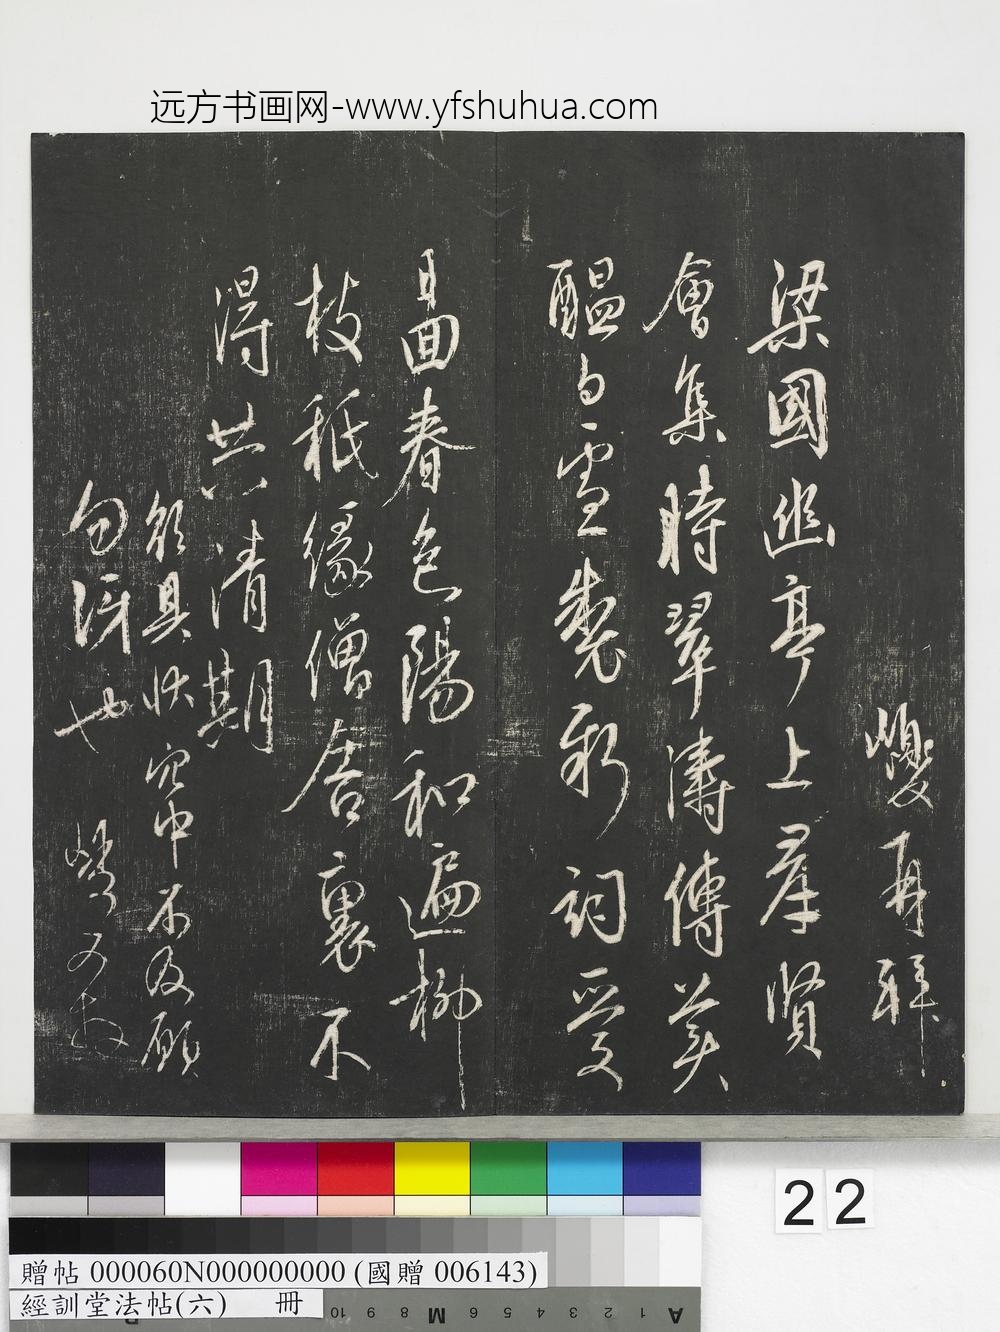 远方书画网-www.yfshuhua.com
夔再拜
梁國幽亭上群賢
會集時翠濤傳美
醞白雪製新詞受
目回春色陽和遍柳
枝秖緣僧舍裏不
得共清期
飲具快 中不及顧
勿訝也
22
贈帖 000060N000000000 (國贈 006143)
經訓堂法帖(六) 冊
10 9 8 M 6 5 4 3 2 1 A